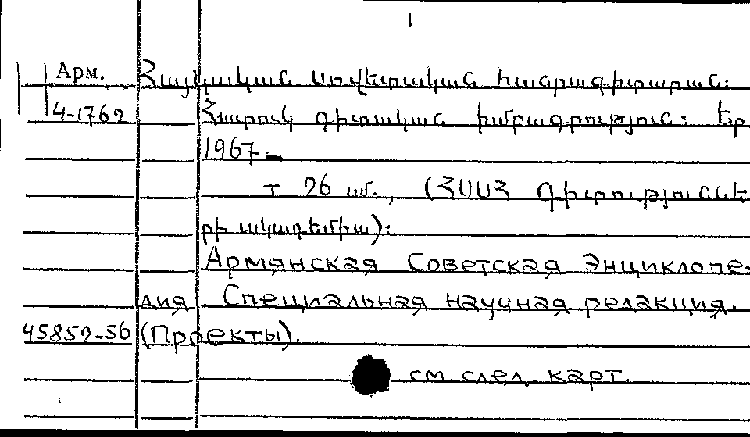 1
Арм. Հայկական սովետական հանրագիտարան:
4-1762 Հատուկ գիտական խմբագրություն: Եր
1967-
т 26 սմ., (ՀՍՍՀ Գիտություննե
րի ակադեմիա):
Армянская Советская Энциклопе-
дия Специальная научная редакция.
45852-56 (Проекты).
см след. карт.